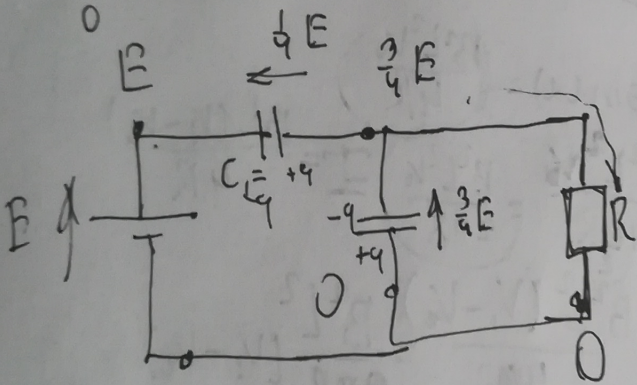 0
E
1/4 E
3/4 E
C₁= +q
-q
E
-q
+q
3/4 E
R
0
0